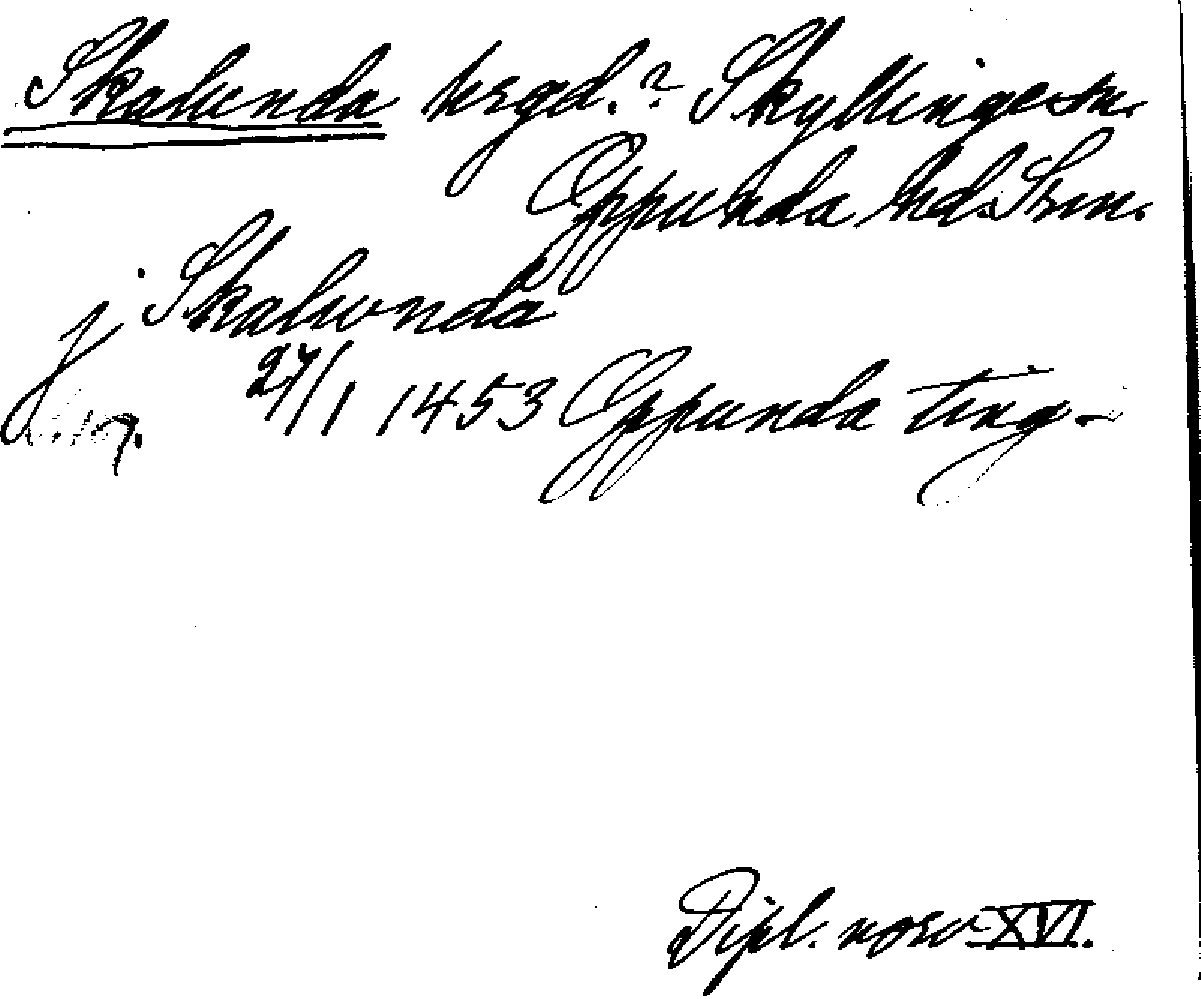 Skalunda hrgd.? Skyllinge sn.
Oppunda hd. Srm.
j Skalwnda
27/1 1453 Oppunda ting-
Dipl. norv XVI.